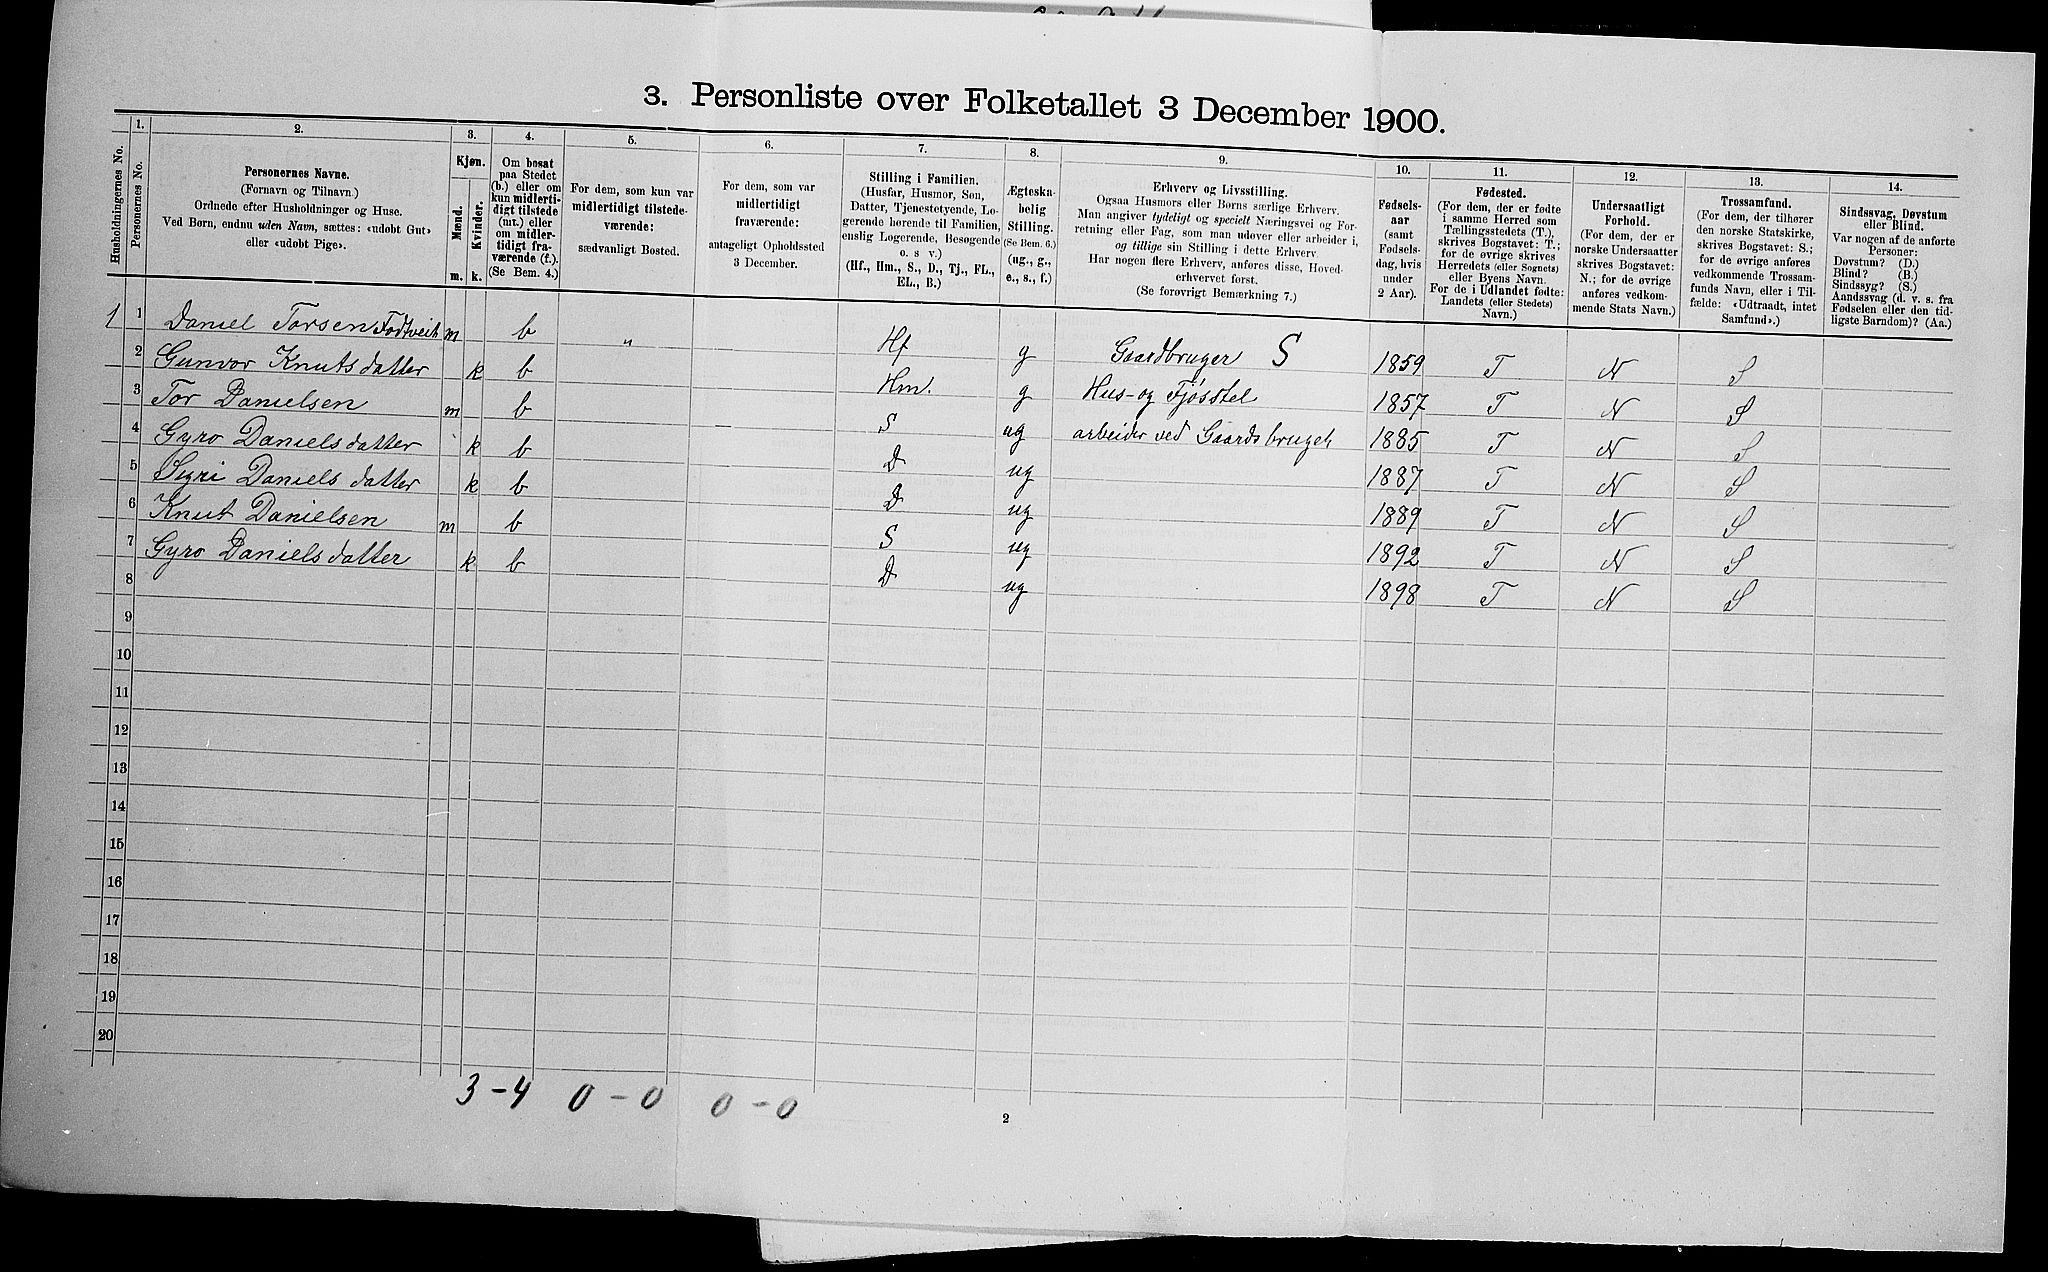 3. Personliste over Folketallet 3 December 1900.
Husholdningernes No.
1.
Personernes No.
2.
Personernes Navne.
(Fornavn og Tilnavn.)
Ordnede efter Husholdninger og Huse.
Ved Børn, endnu uden Navn, sættes: «udøbt Gut»
eller «udøbt Pige».
3.
Kjøn.
Mænd.
Kvinder.
m. k.
4.
Om bosat
paa Stedet
(b.) eller om
kun midlerti-
digt tilstede
(mt.) eller
om midler-
tidigt fra-
værende (f.).
(Se Bem. 4.)
5.
For dem, som kun var
midlertidigt tilstede-
værende:
sædvanligt Bosted.
6.
For dem, som var
midlertidigt
fraværende:
antageligt Opholdssted
3 December.
7.
Stilling i Familien.
(Husfar, Husmor, Søn,
Datter, Tjenestetyende, Lo-
gerende hørende til Familien,
enslig Logerende, Besøgende
o. s v.)
(Hf., Hm., S., D., Tj., FL.,
EL., B.)
8.
Ægteska-
belig
Stilling.
(Se Bem. 6.)
(ug., g.,
e., s., f.)
9.
Erhverv og Livsstilling.
Ogsaa Husmors eller Børns særlige Erhverv.
Man angiver tydeligt og specielt Næringsvei og For-
retning eller Fag, som man udøver eller arbeider i,
og tillige sin Stilling i dette Erhverv.
Har nogen flere Erhverv, anføres disse, Hoved-
erhvervet først.
(Se forøvrigt Bemærkning 7.)
10.
Fødsels-
aar
(samt
Fødsels-
dag, hvis
under
2 Aar).
11.
Fødested.
(For dem, der er fødte
i samme Herred som
Tællingsstedets (T.),
skrives Bogstavet: T.;
for de øvrige skrives
Herredets (eller Sognets)
eller Byens Navn.
For de i Udlandet fødte:
Landets (eller Stedets)
Navn.)
12.
Undersaatligt
Forhold.
(For dem, der er
norske Undersaatter
skrives Bogstavet:
N.; for de øvrige
anføres vedkom-
mende Stats Navn.)
13.
Trossamfund.
(For dem, der tilhører
den norske Statskirke,
skrives Bogstavet: S.;
for de øvrige anføres
vedkommende Trossam-
funds Navn, eller i Til-
fælde: «Udtraadt, intet
Samfund».)
14.
Sindssvag, Døvstum
eller Blind.
Var nogen af de anførte
Personer:
Døvstum? (D.)
Blind? (B.)
Sindssyg? (S.)
Aandssvag (d. v. s. fra
Fødselen eller den tid-
ligste Barndom)? (Aa.)
1 1 Daniel Torsen Fodtveit m b " Hf g Gaardbruger S 1859 T N S
2 Gunvor Knutsdatter k b Hm. g Hus- og Fjøsstel 1857 T N S
3 Tor Danielsen m b S ug arbeider ved Gaardsbruget 1885 T N S
4 Gyro Danielsdatter k b D ug 1887 T N S
5 Sigri Danielsdatter k b D ug 1889 T N S
6 Knut Danielsen m b S ug 1892 T N S
7 Gyro Danielsdatter k b D ug 1898 T N S
8
9
10
11
12
13
14
15
16
17
18
19
20
3 – 4 0 – 0 0 – 0
2